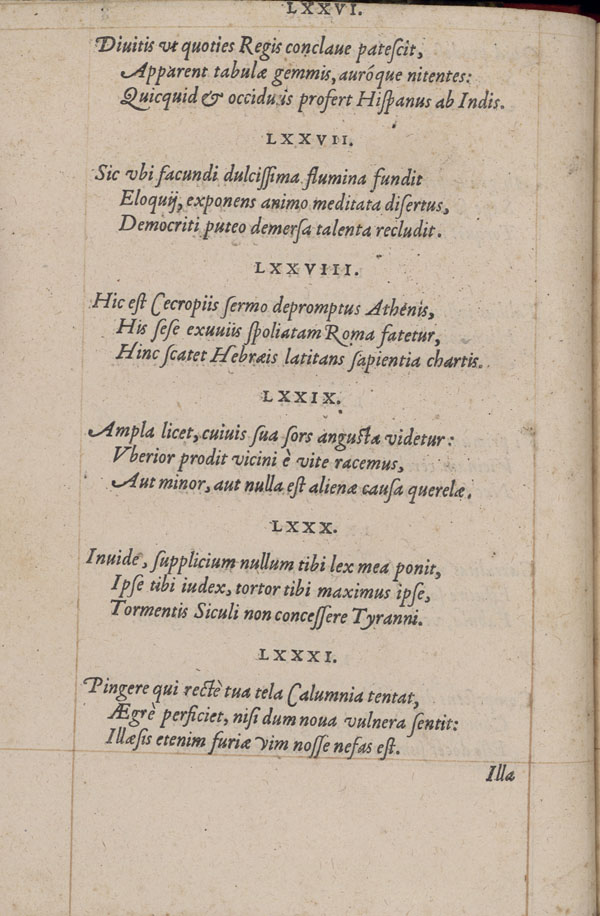 LXXVI.
Diuitis vt quoties Regis conclaue pateſcit,
Apparent tabulæ gemmis, auróque nitentes:
Quicquid & occiduis profert Hiſpanus ab Indis.
LXXVII.
Sic vbi facundi dulciſſima flumina fundit
Eloquij, exponens animo meditata diſertus,
Democriti puteo demerſa talenta recludit.
LXXVIII.
Hic eſt Cecropiis ſermo depromptus Athènis,
His ſeſe exuuiis ſpoliatam Roma fatetur,
Hinc ſcatet Hebræis latitans ſapientia chartis.
LXXIX.
Ampla licet, cuiuis ſua ſors anguſta videtur:
Vberior prodit vicini è vite racemus,
Aut minor, aut nulla eſt alienæ cauſa querelæ.
LXXX.
Inuide, ſupplicium nullum tibi lex mea ponit,
Ipſe tibi iudex, tortor tibi maximus ipſe,
Tormentis Siculi non conceſſere Tyranni.
LXXXI.
Pingere qui rectè tua tela Calumnia tentat,
Ægrè perficiet, niſi dum noua vulnera ſentit:
Illæſis etenim furiæ vim noſſe nefas eſt.
Illa